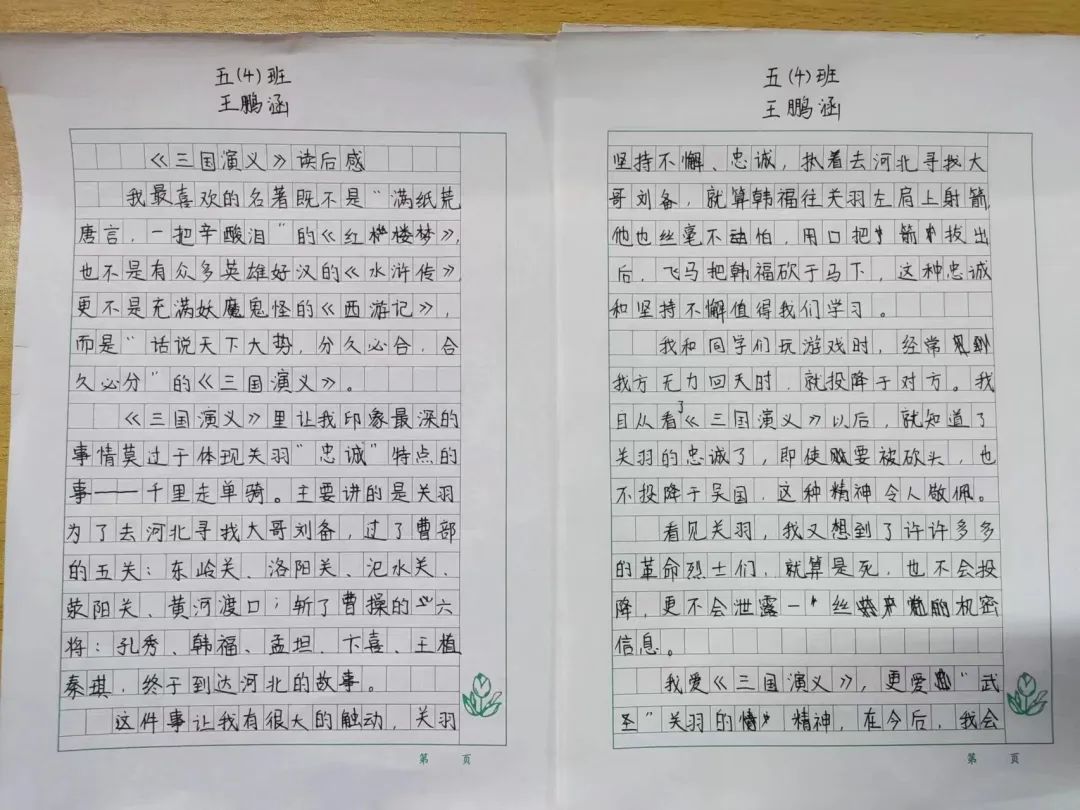 五(4)班
王鹏涵
《三国演义》读后感
我最喜欢的名著既不是"满纸荒
唐言,一把辛酸泪"的《红楼梦》,
也不是有众多英雄好汉的《水浒传》,
更不是充满妖魔鬼怪的《西游记》,
而是"话说天下大势,分久必合,合
久必分"的《三国演义》。
《三国演义》里让我印象最深的
事情莫过于体现关羽"忠诚"特点的
事——千里走单骑。主要讲的是关羽
为了去河北寻找大哥刘备,过了曹部
的五关:东岭关、洛阳关、汜水关、
荥阳关、黄河渡口;斩了曹操的六
将:孔秀、韩福、孟坦、卞喜、王植
秦琪,终于到达河北的故事。
这件事让我有很大的触动,关羽
第 页
五(4)班
王鹏涵
坚持不懈、忠诚,执着去河北寻找大
哥刘备,就算韩福往关羽左肩上射箭
他也丝毫不动怕,用口把箭拔出
后,飞马把韩福砍于马下,这种忠诚
和坚持不懈值得我们学习。
我和同学们玩游戏时,经常
我方无力回天时,就投降于对方。我
自从看了《三国演义》以后,就知道了
关羽的忠诚了,即使要被砍头,也
不投降于吴国,这种精神令人敬佩。
看见关羽,我又想到了许许多多
的革命烈士们,就算是死,也不会投
降,更不会泄露一丝的机密
信息。
我爱《三国演义》,更爱"武
圣"关羽的精神,在今后,我会
第 页